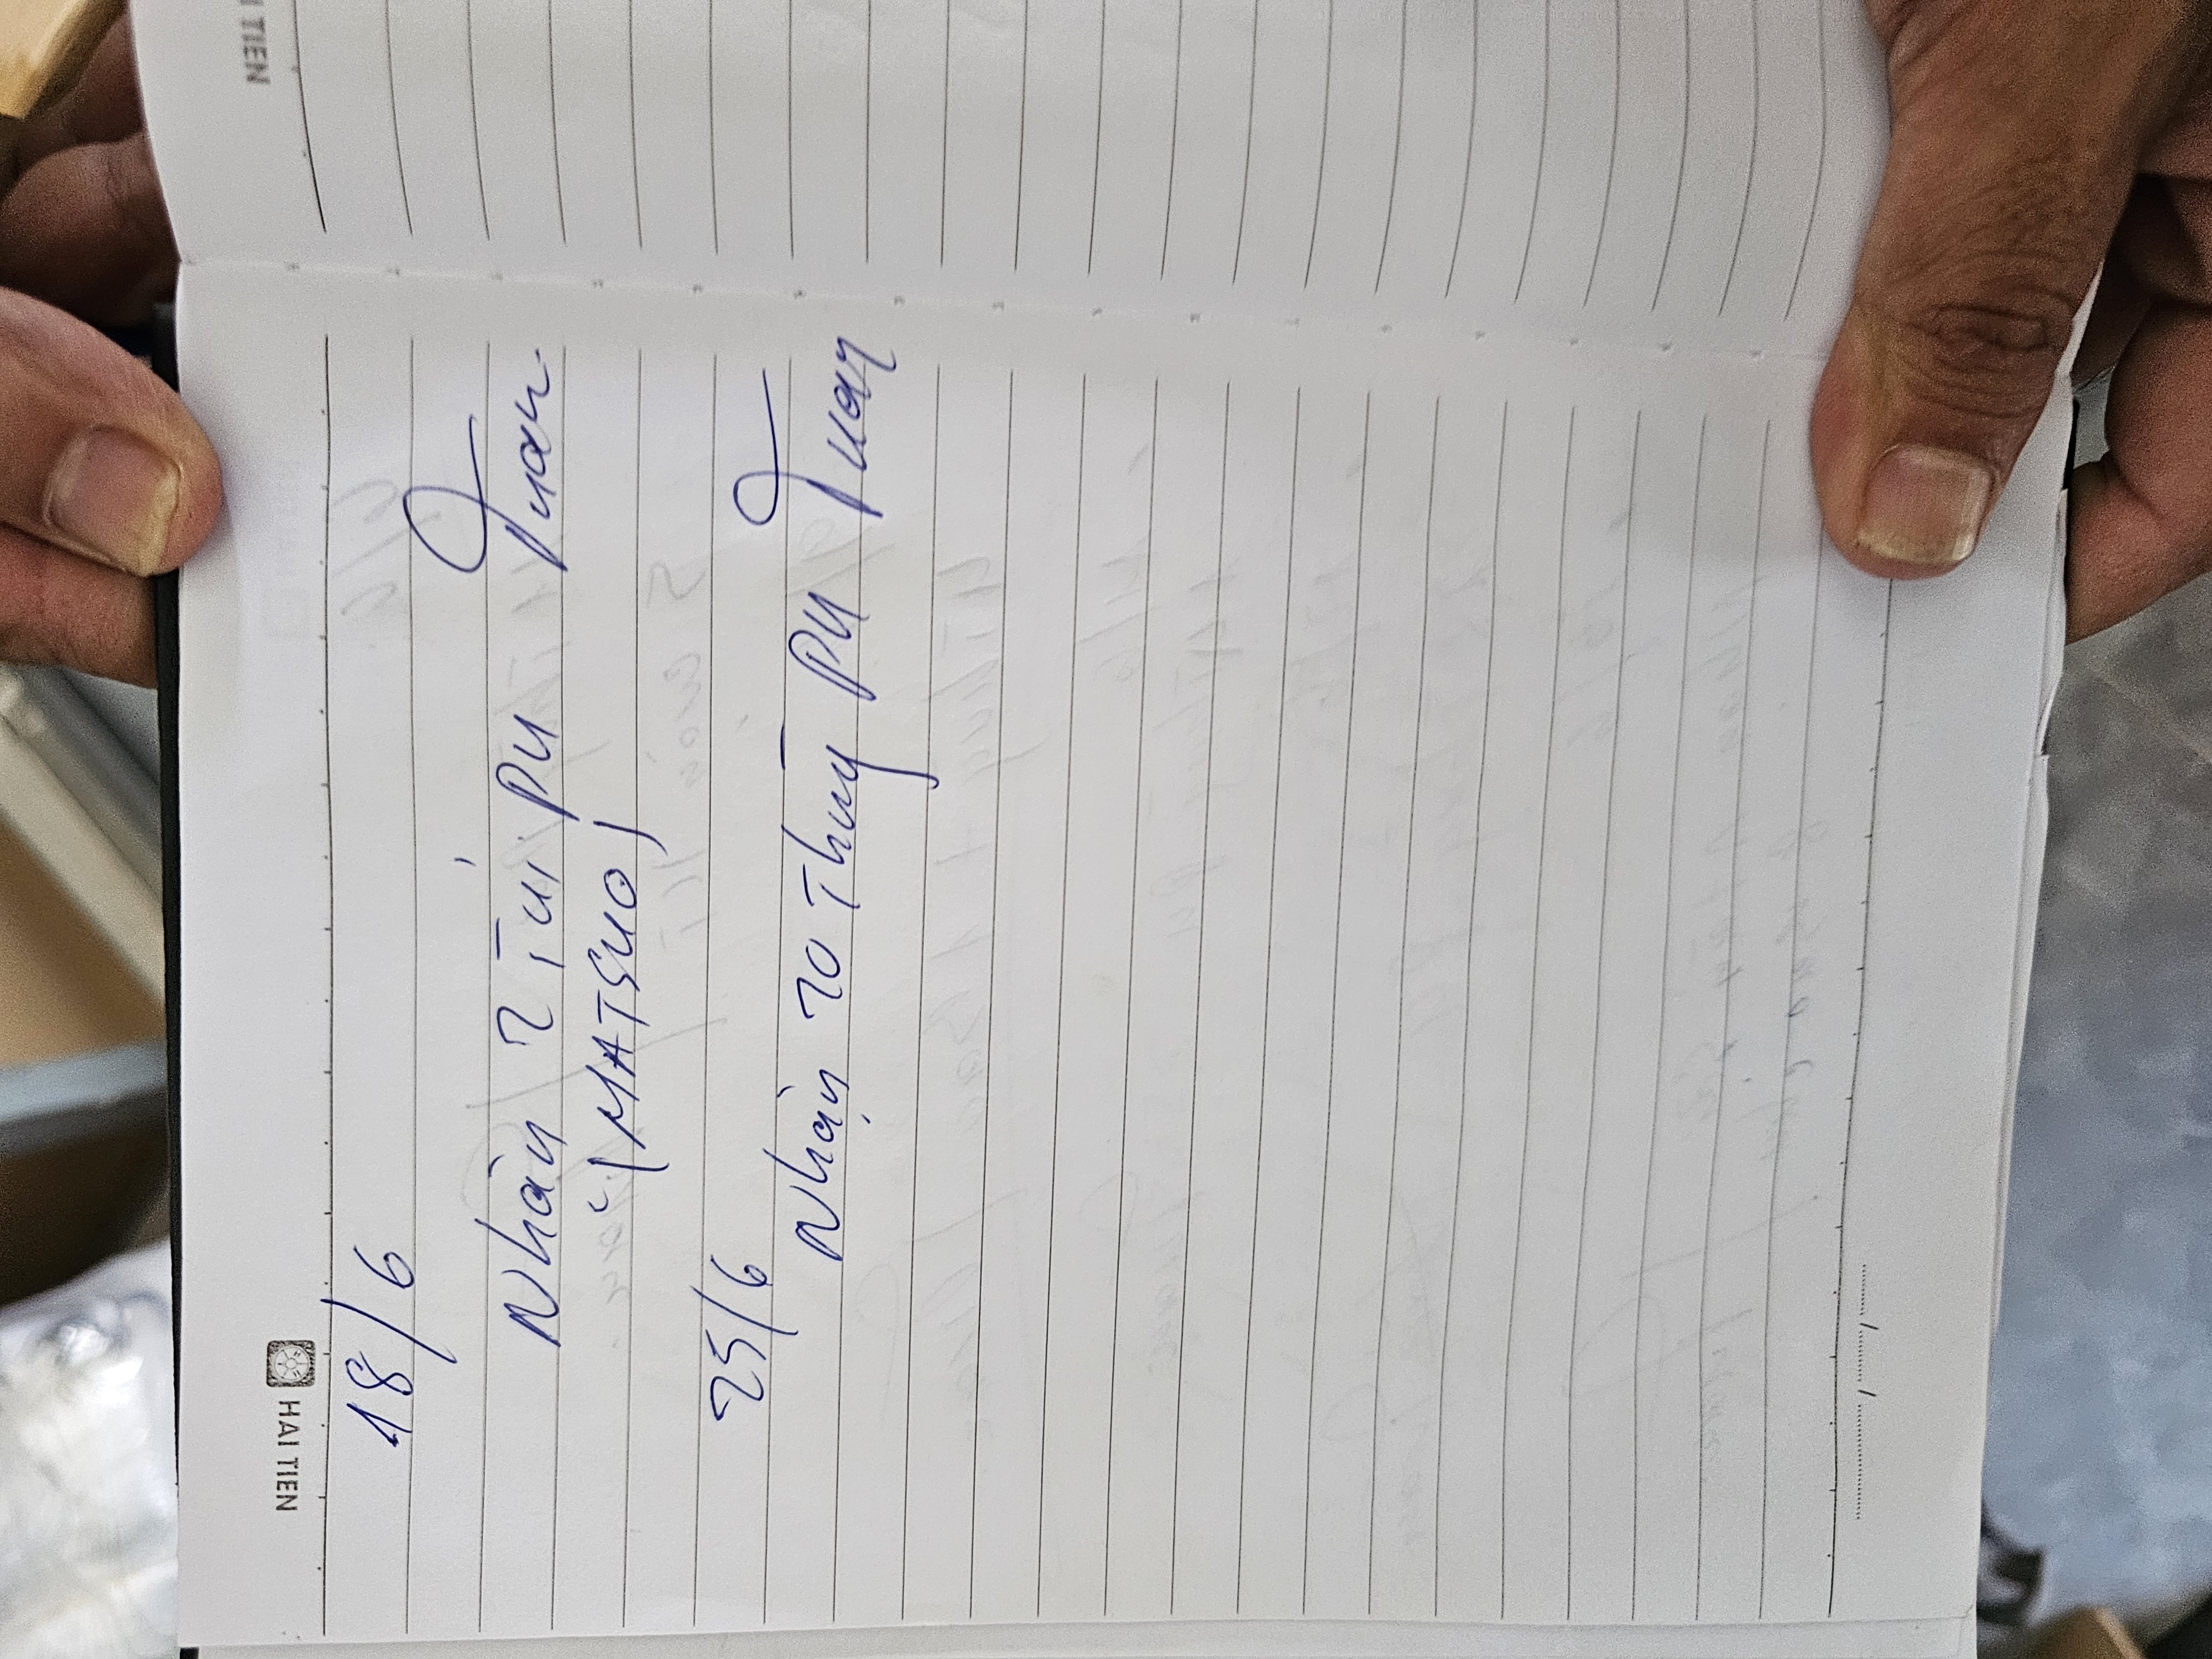 HAI TIEN
18/6
Nhận 2 Túi PU Tuan
(MATSUO)
25/6
Nhận 20 Thùng PU Tuan
I TIEN